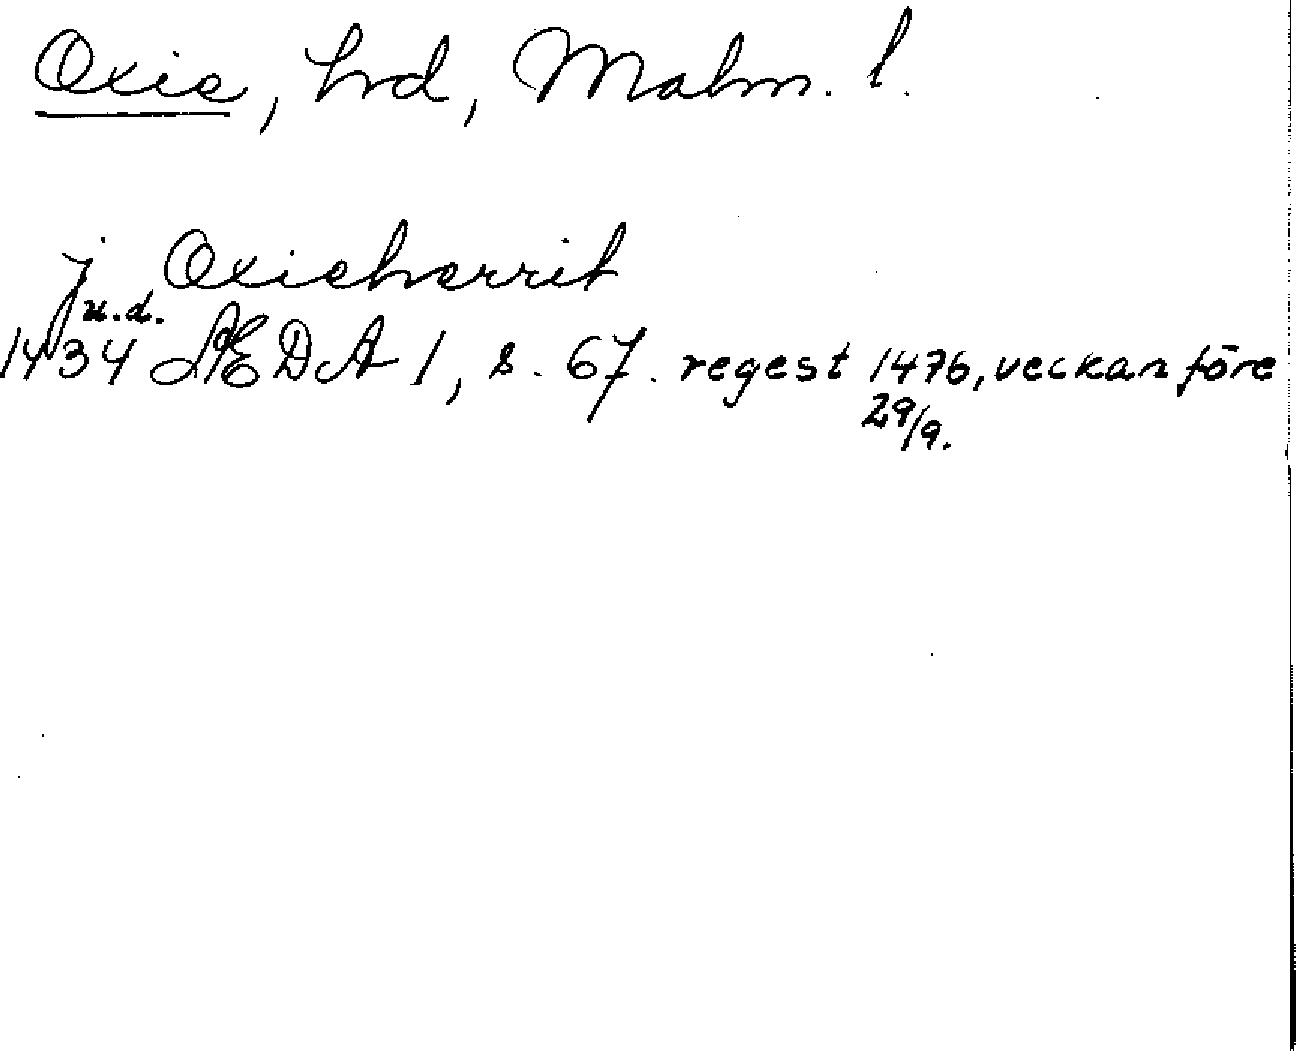 Oxie, hrd, Malm. l.
j Oxieherrit
u.d.
1434 ÆDA 1, s. 67. regest 1476, veckan före
29/9.